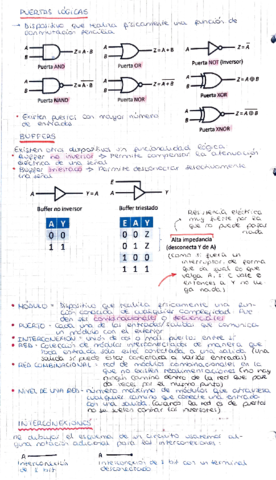 PUERTAS LÓGICAS
→ Dispositivo que realiza físicamente una función de
conmutación sencilla
A B Z=A·B
Puerta AND
A B Z=A+B
Puerta OR
A Z=A
Puerta NOT (inversor)
A B Z=A·B
Puerta NAND
A B Z=A+B
Puerta NOR
A B Z=A⊕B
Puerta XOR
A B Z=A⊕B
Puerta XNOR
• Existen puertas con mayor número
de entradas
BUFFERS
Existen otros dispositivos sin funcionalidad lógica
• Buffer no inversor → Permite compensar la atenuación
eléctrica de una señal
• Buffer triestado → Permite desconectar selectivamente
una señal
A Y=A
Buffer no inversor
A Y
0 0
1 1
E A Y
Buffer triestado
E A Y
0 0 Z
0 1 Z
1 0 0
1 1 1
Resistencia eléctrica
muy fuerte por la
que no puede pasar
nada
Alta impedancia
(desconecta Y de A)
(como si fuera un
interruptor, de forma
que da igual lo que
valga A,
entonces a Y no lle-
ga nada)
• MÓDULO = Dispositivo que realiza físicamente una fun-
ción conocida de cualquier complejidad. Pue-
den ser combinacionales o secuenciales
• PUERTO = cada una de las entradas/salidas que comunica
un módulo con el exterior
• INTERCONEXIÓN = unión de 2 o más puertos entre sí
• RED = Colección de módulos interconectados de manera que
toda entrada sólo esté conectada a una salida (una
salida sí puede estar conectada a varias entradas)
• RED COMBINACIONAL = red de módulos combinacionales en la
que no existen realimentaciones (no hay
ningún camino dentro de la red que pase
dos veces por el mismo punto)
• NIVEL DE UNA RED = número máximo de módulos que atraviesa
cualquier camino que conecte una entrada
con una salida (cuando la red es de puertas
no se suelen contar los inversores)
INTERCONEXIONES
Interconexión
de 1 bit
Interconexión de 1 bit con un terminal
desconectado